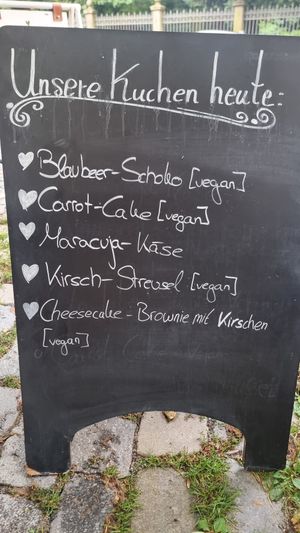 Unsere Kuchen heute:
Blaubeer-Schoko [vegan]
Carrot-Cake [vegan]
Maracuja-Käse
Kirsch-Streusel [vegan]
Cheesecake-Brownie mit Kirschen
[vegan]